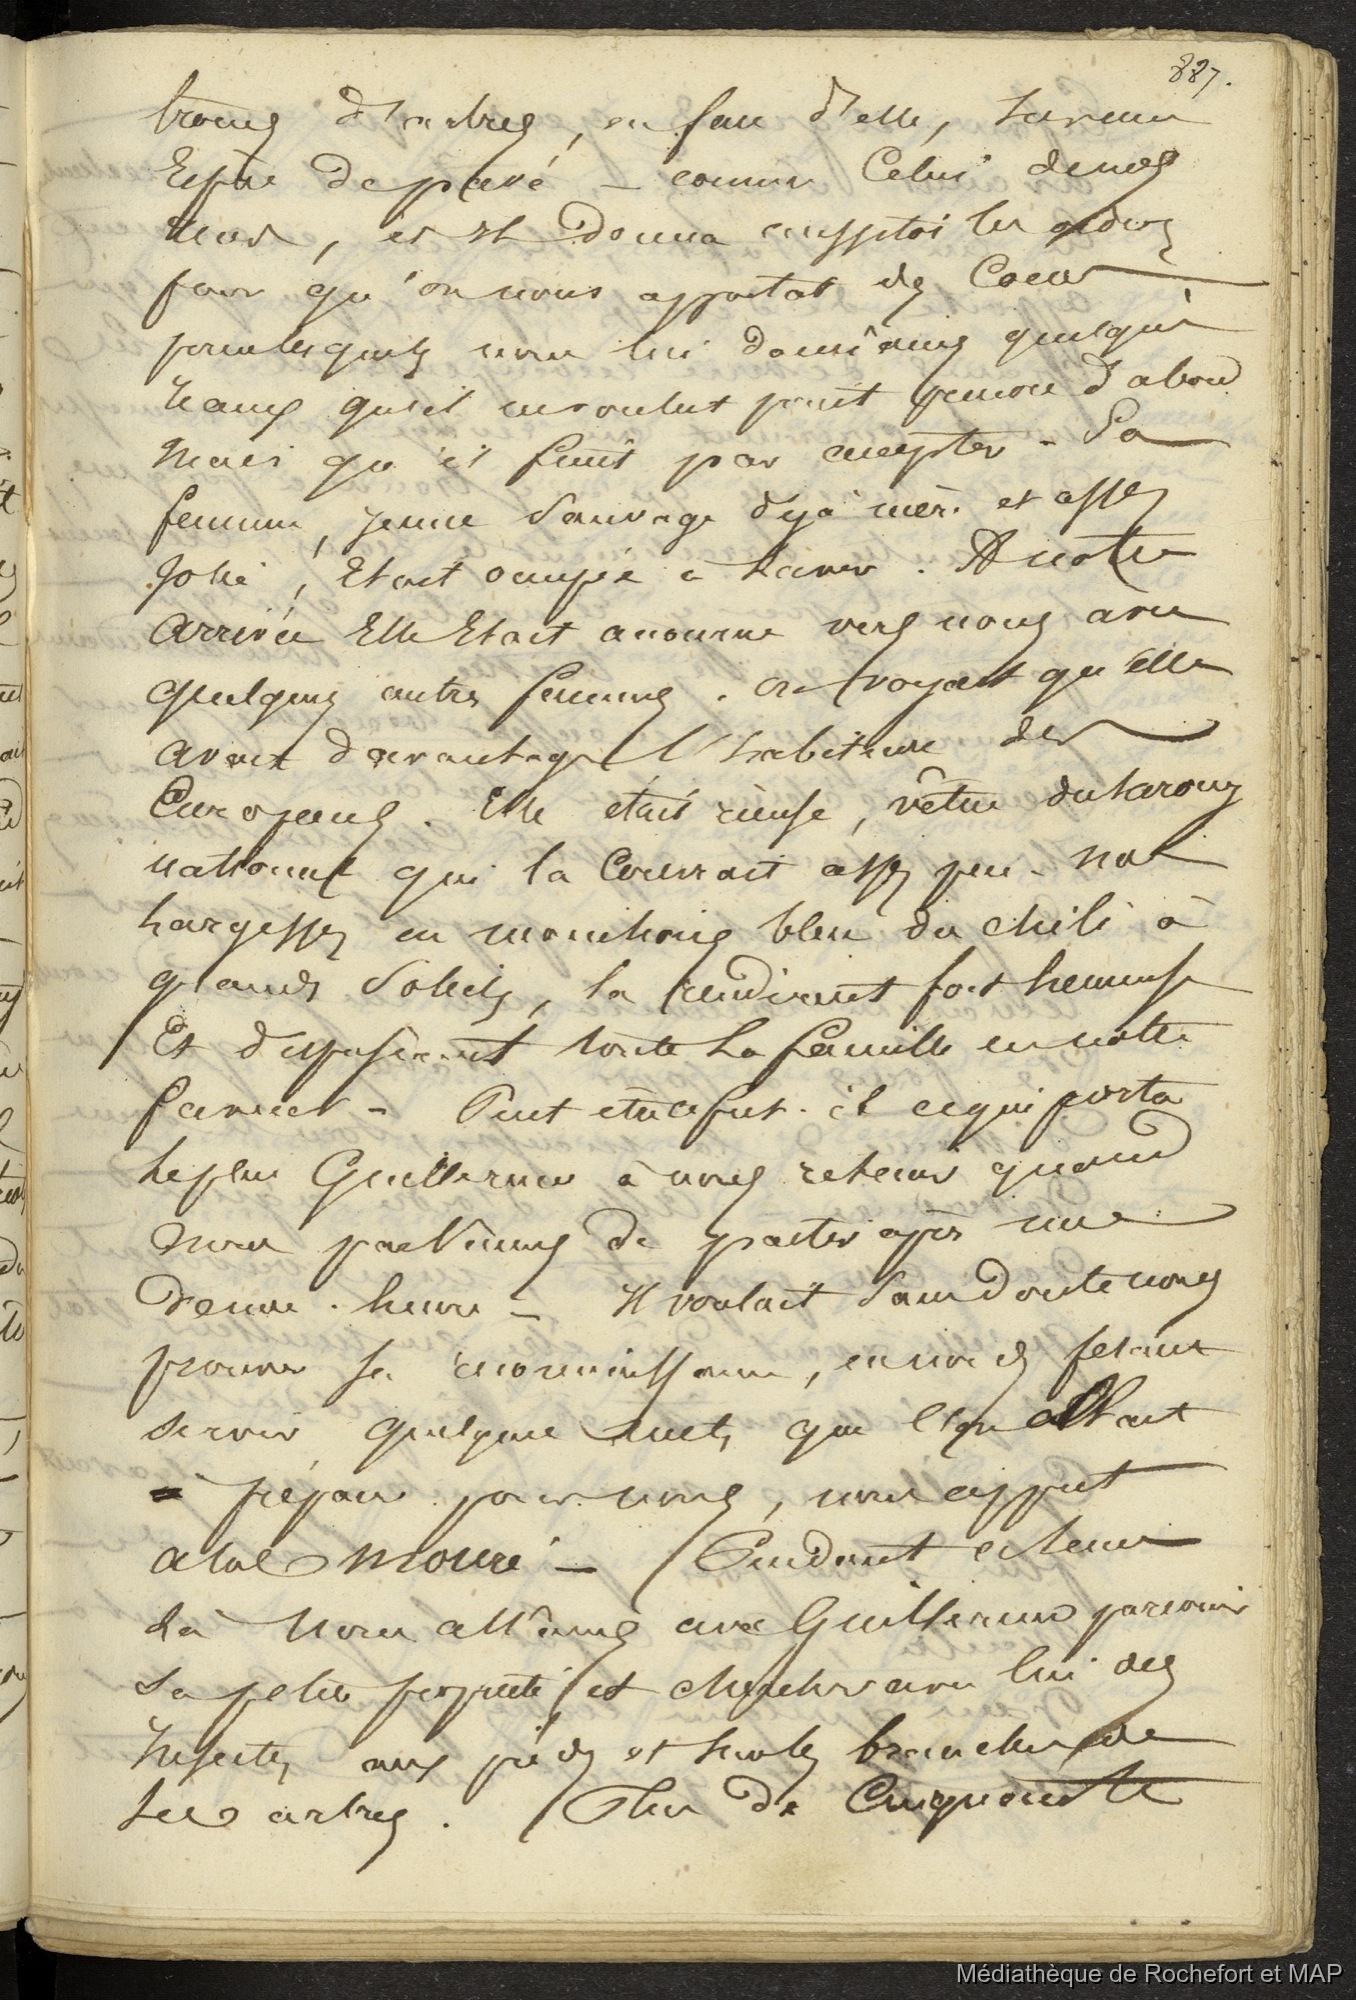 887.
troncs d'arbres, en face d'elle, sur une
Espèce de pavé – comme Celui de nos
rues, et il donna aussitôt les ordres
pour qu'on nous apportat des Cocos
pour lesquels nous lui donnâmes quelques
francs qu'il ne voulut point prendre d'abord
Mais qu'il finit par accepter – Sa
femme, jeune Sauvage déjà mère et assez
Jolie, Etait occupée à Laver. A notre
Arrivée Elle Etait accourue vers nous avec
quelques autres femmes. On voyait qu'elle
avait davantage l'habitude des
Européens. Elle était rieuse, vêtue du Parouy
national qui la Couvrait assez peu – Nos
Largesses en mouchoirs bleu du Chili à
grands Soleils, la rendirent fort heureuse
Et disposèrent toute La famille en notre
faveur – Peut être ce fut-il ce qui porta
Le plus Guillerme à nous retenir quand
nous parlâmes de partir après une
Demie-heure – Il voulait Sans Doute nous
prouver sa reconnaissance, en nous fesant
servir quelques mets, que l'on allait
préparer pour nous,
Pendant ce temps
Là Nous allâmes avec Guillerme parcourir
Sa petite propriété, et chercher avec lui des
Insectes aux pieds et sur les branches de
Ses arbres. Plus de Cinquante
Médiathèque de Rochefort et MAP